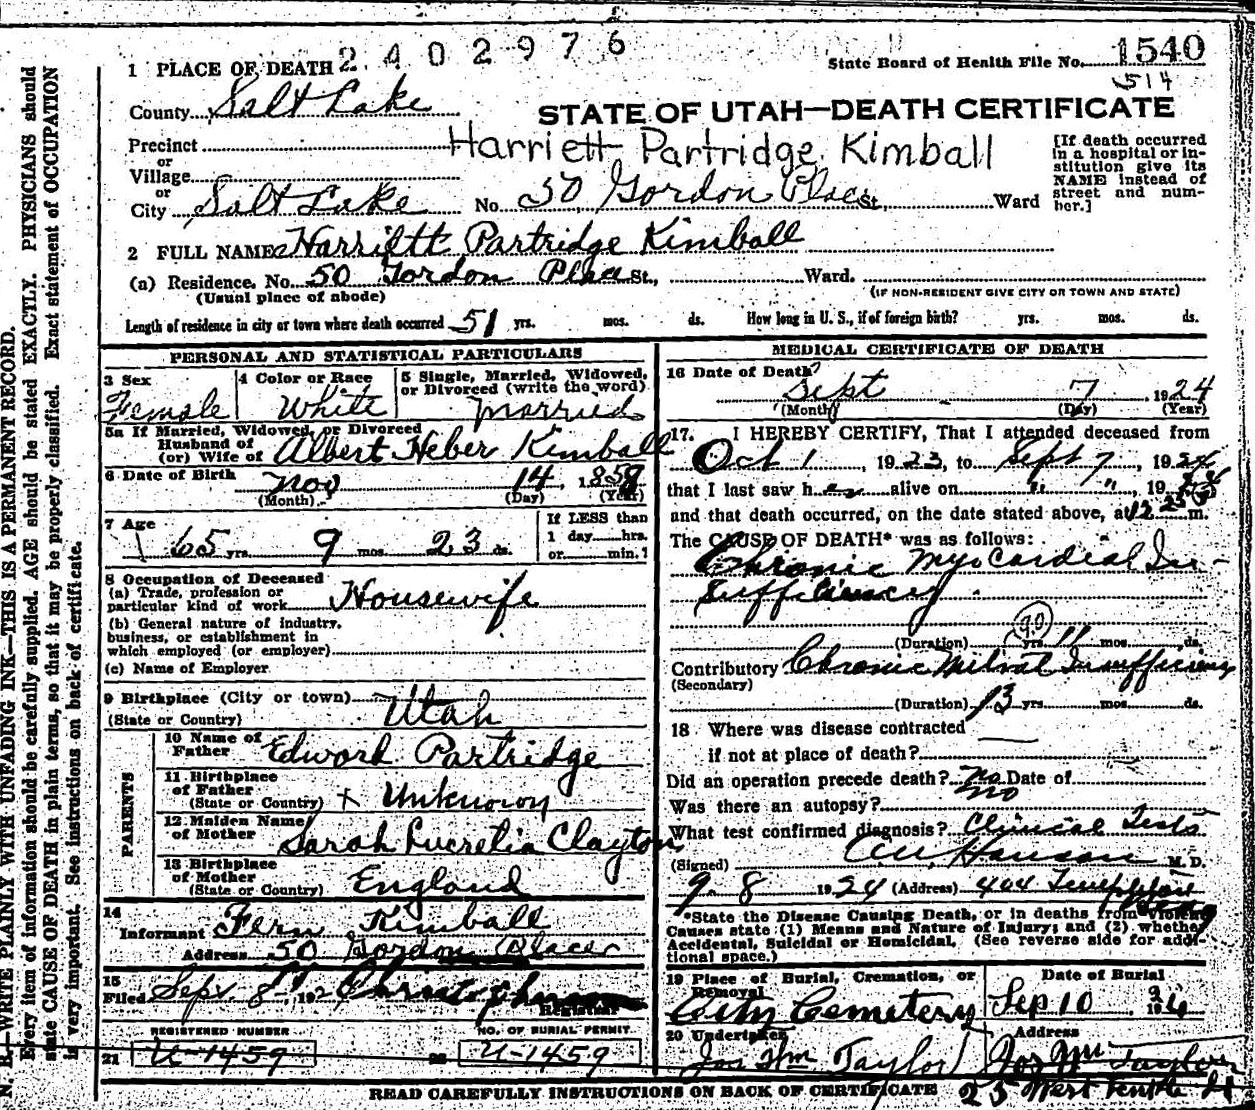 2402976
State Board of Health File No. 1540
514
1 PLACE OF DEATH
County Salt Lake
STATE OF UTAH—DEATH CERTIFICATE
Precinct
Harriett Partridge Kimball
or
Village
or
City Salt Lake No. 50 Gordon Place St., Ward
[If death occurred
in a hospital or in-
stitution give its
NAME instead of
street and num-
ber.]
2 FULL NAME Harriett Partridge Kimball
(a) Residence. No. 50 Gordon Place St., Ward.
(Usual place of abode)
(IF NON-RESIDENT GIVE CITY OR TOWN AND STATE)
Length of residence in city or town where death occurred 51 yrs. mos. ds. How long in U. S., if of foreign birth? yrs. mos. ds.
PERSONAL AND STATISTICAL PARTICULARS
3 Sex
Female
4 Color or Race
White
5 Single, Married, Widowed,
or Divorced (write the word)
Married
5a If Married, Widowed, or Divorced
Husband of
(or) Wife of Albert Heber Kimball
6 Date of Birth Nov 14, 185
(Month) (Day) (Year)
7 Age
65 yrs. 9 mos. 23 ds.
If LESS than
1 day hrs.
or min.?
8 Occupation of Deceased
(a) Trade, profession or
particular kind of work Housewife
(b) General nature of industry,
business, or establishment in
which employed (or employer)
(c) Name of Employer
9 Birthplace (City or town)
(State or Country) Utah
PARENTS
10 Name of
Father Edward Partridge
11 Birthplace
of Father
(State or Country) + Unknown
12 Maiden Name
of Mother Sarah Lucretia Clayton
13 Birthplace
of Mother
(State or Country) England
14
Informant Fern Kimball
Address 50 Gordon Place
15
Filed Sept. 8, 192
Registrar
REGISTERED NUMBER
21 U-1459
NO. OF BURIAL PERMIT.
22 U-1459
MEDICAL CERTIFICATE OF DEATH
16 Date of Death?
Sept 7, 1924
(Month) (Day) (Year)
17. I HEREBY CERTIFY, That I attended deceased from
Oct 1, 1923, to Sept 7, 1924
that I last saw her alive on " ", 19
and that death occurred, on the date stated above, at 12 m.
The CAUSE OF DEATH* was as follows:
Chronic Myocardial In-
sufficiency.
90
(Duration) yrs. 11 mos. ds.
Contributory Chronic Mitral Insufficiency
(Secondary)
(Duration) 13 yrs. mos. ds.
18 Where was disease contracted
if not at place of death?
Did an operation precede death? No Date of
Was there an autopsy? No
What test confirmed diagnosis? Clinical Tests
(Signed) Hanson M. D.
9-8 1924 (Address) 404 Templeton
Bldg
*State the Disease Causing Death, or in deaths from Violent
Causes state (1) Means and Nature of Injury; and (2) whether
Accidental, Suicidal or Homicidal. (See reverse side for addi-
tional space.)
19 Place of Burial, Cremation, or
Removal
City Cemetery
Date of Burial
Sep 10 1924
20 Undertaker
Jos Wm Taylor
Address
Jos Wm Taylor
25 West Temple St
READ CAREFULLY INSTRUCTIONS ON BACK OF CERTIFICATE
N. B.—WRITE PLAINLY WITH UNFADING INK—THIS IS A PERMANENT RECORD.
Every item of information should be carefully supplied. AGE should be stated EXACTLY. PHYSICIANS should
state CAUSE OF DEATH in plain terms, so that it may be properly classified. Exact statement of OCCUPATION
is very important. See instructions on back of certificate.